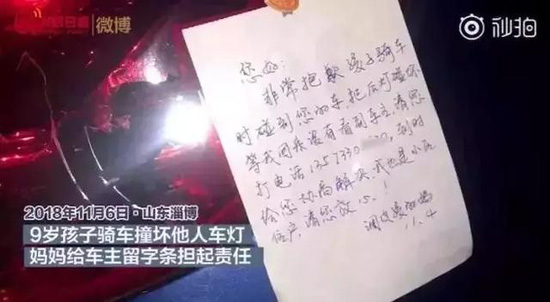 微博
秒拍
您好:
非常抱歉 孩子骑车
时碰到您的车,把后灯碰坏
等我回来没有看到车主,请您
打电话 13573300 到时
给您协商解决,我也是小区
住户,请您放心!
11.4
2018年11月6日·山东淄博
9岁孩子骑车撞坏他人车灯
妈妈给车主留字条担起责任